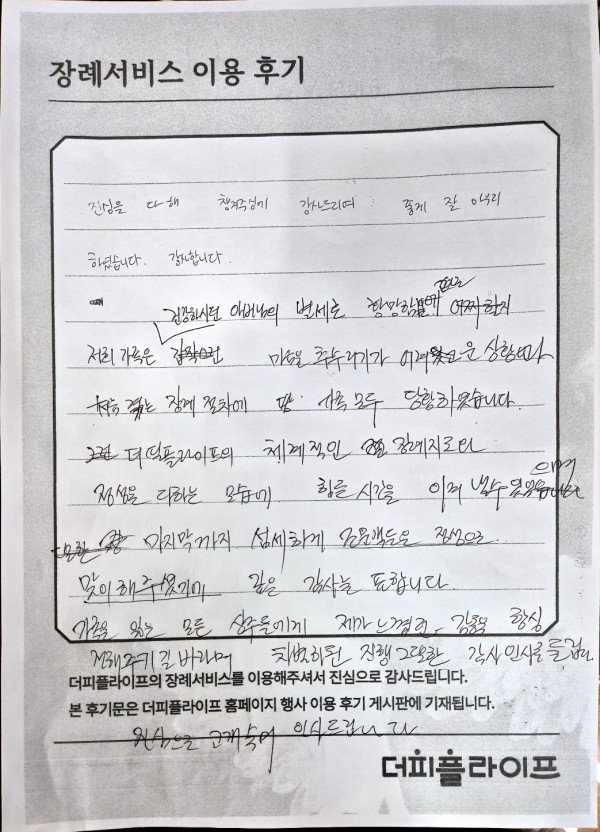 장례서비스 이용 후기
진심을 다해 챙겨주심에 감사드리며 좋게 잘 마무리
하였습니다. 감사합니다.
건강하시던 아버님의 별세로 황망함에
저희 가족은 마음을 추수리기가 어려운 상황
장례 절차에 가족 모두 당황하였습니다.
더피플라이프의 체계적인 장례지도
정성을 다하는 모습에 힘든 시간을 이겨 낼수 있었으며
마지막까지 섬세하게 조문객들을 정성으로
맞이해주셨기에 깊은 감사를 표합니다.
가족을 잃는 모든 상주들에게 제가 느꼈던 항상
전해주기길 바라며 진행 감사인사를
더피플라이프의 장례서비스를 이용해주셔서 진심으로 감사드립니다.
본 후기문은 더피플라이프 홈페이지 행사 이용 후기 게시판에 기재됩니다.
진심으로 고개숙여 인사드립니다
더피플라이프